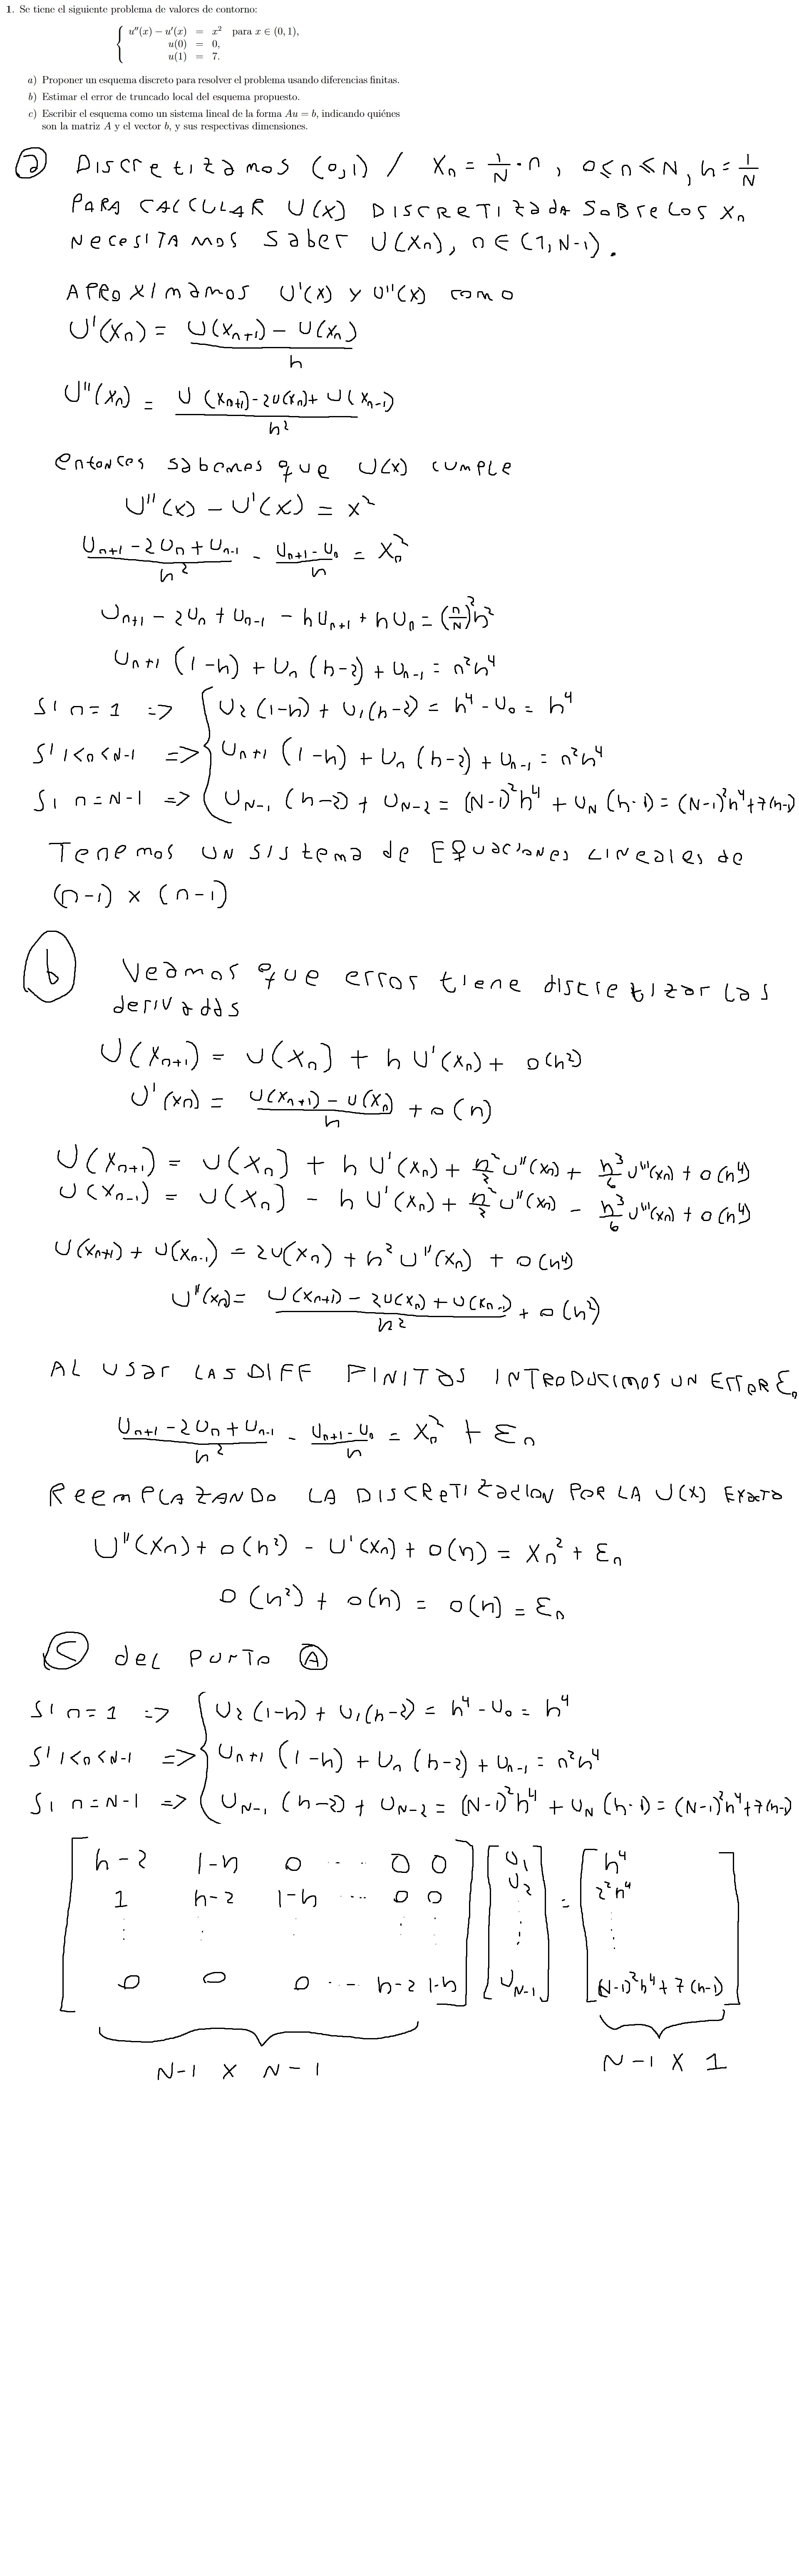 1. Se tiene el siguiente problema de valores de contorno:
u''(x) − u'(x) = x² para x ∈ (0, 1),
u(0) = 0,
u(1) = 7.
a) Proponer un esquema discreto para resolver el problema usando diferencias finitas.
b) Estimar el error de truncado local del esquema propuesto.
c) Escribir el esquema como un sistema lineal de la forma Au = b, indicando quiénes
son la matriz A y el vector b, y sus respectivas dimensiones.
ⓐ Discretizamos (0,1) / Xn = 1/N · n, 0 ≤ n ≤ N, h = 1/N
PARA CALCULAR U(X) DISCRETIZADA SOBRE LOS Xn
NECESITAMOS SABER U(Xn), n ∈ (1, N-1).
APROXIMAMOS U'(X) Y U''(X) COMO
U'(Xn) = (U(Xn+1) - U(Xn)) / h
U''(Xn) = (U(Xn+1) - 2U(Xn) + U(Xn-1)) / h²
entonces sabemos que U(X) cumple
U''(X) - U'(X) = X²
(Un+1 - 2Un + Un-1) / h² - (Un+1 - Un) / h = Xn²
Un+1 - 2Un + Un-1 - hUn+1 + hUn = (n/N)² h²
Un+1 (1-h) + Un (h-2) + Un-1 = n²h⁴
Si n = 1 => { U2 (1-h) + U1 (h-2) = h⁴ - U0 = h⁴
Si 1<n<N-1 => { Un+1 (1-h) + Un (h-2) + Un-1 = n²h⁴
Si n = N-1 => { UN-1 (h-2) + UN-2 = (N-1)²h⁴ + UN (h-1) = (N-1)²h⁴ + 7(h-1)
Tenemos UN SISTEMA de EQUACIONES LINEALES de
(n-1) x (n-1)
ⓑ Veamos que error tiene discretizar las
derivadas
U(Xn+1) = U(Xn) + h U'(Xn) + O(h²)
U'(Xn) = (U(Xn+1) - U(Xn)) / h + O(h)
U(Xn+1) = U(Xn) + h U'(Xn) + h²/2 U''(Xn) + h³/6 U'''(Xn) + O(h⁴)
U(Xn-1) = U(Xn) - h U'(Xn) + h²/2 U''(Xn) - h³/6 U'''(Xn) + O(h⁴)
U(Xn+1) + U(Xn-1) = 2U(Xn) + h² U''(Xn) + O(h⁴)
U''(Xn) = (U(Xn+1) - 2U(Xn) + U(Xn-1)) / h² + O(h²)
AL USAR LAS DIFF FINITAS INTRODUCIMOS UN ERROR En
(Un+1 - 2Un + Un-1) / h² - (Un+1 - Un) / h = Xn² + En
Reemplazando LA DISCRETIZACION POR LA U(X) EXACTA
U''(Xn) + O(h²) - U'(Xn) + O(h) = Xn² + En
O(h²) + O(h) = O(h) = En
ⓒ del punto Ⓐ
Si n = 1 => { U2 (1-h) + U1 (h-2) = h⁴ - U0 = h⁴
Si 1<n<N-1 => { Un+1 (1-h) + Un (h-2) + Un-1 = n²h⁴
Si n = N-1 => { UN-1 (h-2) + UN-2 = (N-1)²h⁴ + UN (h-1) = (N-1)²h⁴ + 7(h-1)
h-2 1-h 0 ... 0 0 U1 h⁴
1 h-2 1-h ... 0 0 U2 = 2²h⁴
0 0 0 ... h-2 1-h UN-1 (N-1)²h⁴ + 7(h-1)
N-1 X N-1 N-1 X 1